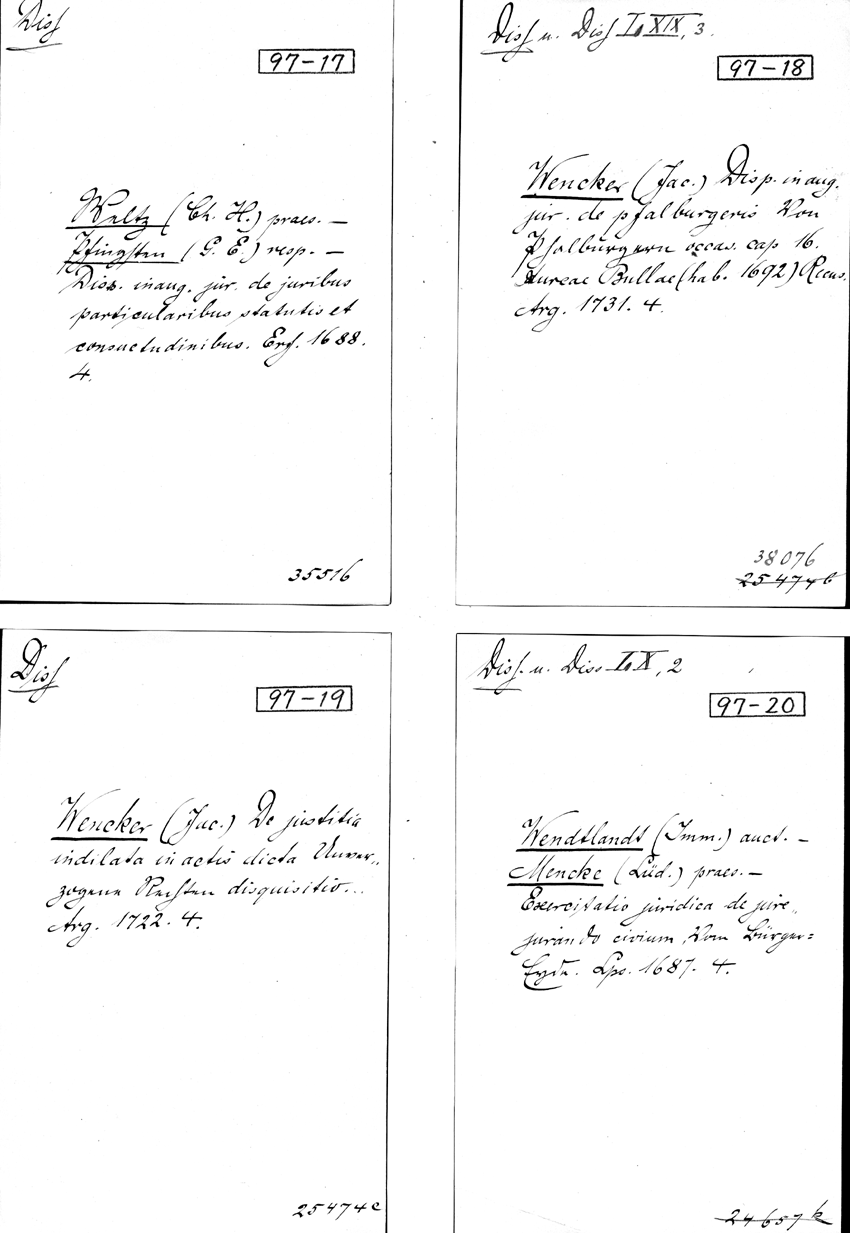 Diss
97-17
Weltz (Ch. H.) praes. —
Pfingsten (G. E.) resp. —
Diss. inaug. jur. de juribus
particularibus statutis et
consuetudinibus. Erf. 1688.
4.
35516
Diss u. Diss I, XIX, 3.
97-18
Wencker (Jac.) Disp. inaug.
jur. de pfalburgeris Von
Pfalburgern occas. cap 16.
Aureae Bullae (hab. 1692) Recus.
Arg. 1731. 4.
38076
25474b
Diss
97-19
Wencker (Jac.) De justitia
indilata in actis dicta Unver„
zogene Rechten disquisitio...
Arg. 1722. 4.
25474c
Diss. u. Diss I, X, 2
97-20
Wendtlandt (Imm.) auct. —
Mencke (Lüd.) praes. —
Exercitatio juridica de jure„
jurando civium, Vom Bürger=
Eyde. Lps. 1687. 4.
24657k